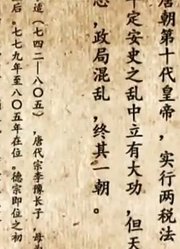 唐朝第十代皇帝，实行两税法
平定安史之乱中立有大功，但天
忌，政局混乱，终其一朝。
适（七四二—八〇五），唐代宗李豫长子，母
后。七七九年至八〇五年在位。德宗即位之初